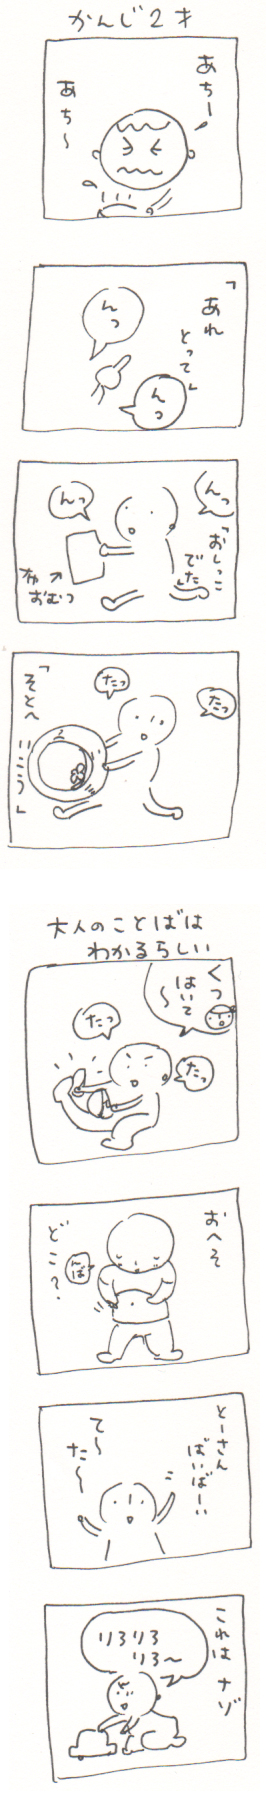 かんじ2才
あちー
あち〜
「あれ
とって」
んっ
んっ
んっ
「おしっこ
でた」
んっ
布
おむつ
たっ
たっ
「そとへ
いこう」
大人のことばは
わかるらしい
くつ
はいて
〜
たっ
たっ
おへそ
どこ?
んば
とーさん
ばいばーい
て〜
た〜
これは ナゾ
りろりろ
りろ〜